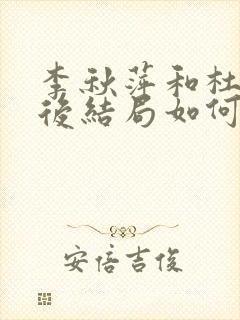 李秋萍和杜
後結局如何
安倍吉俊